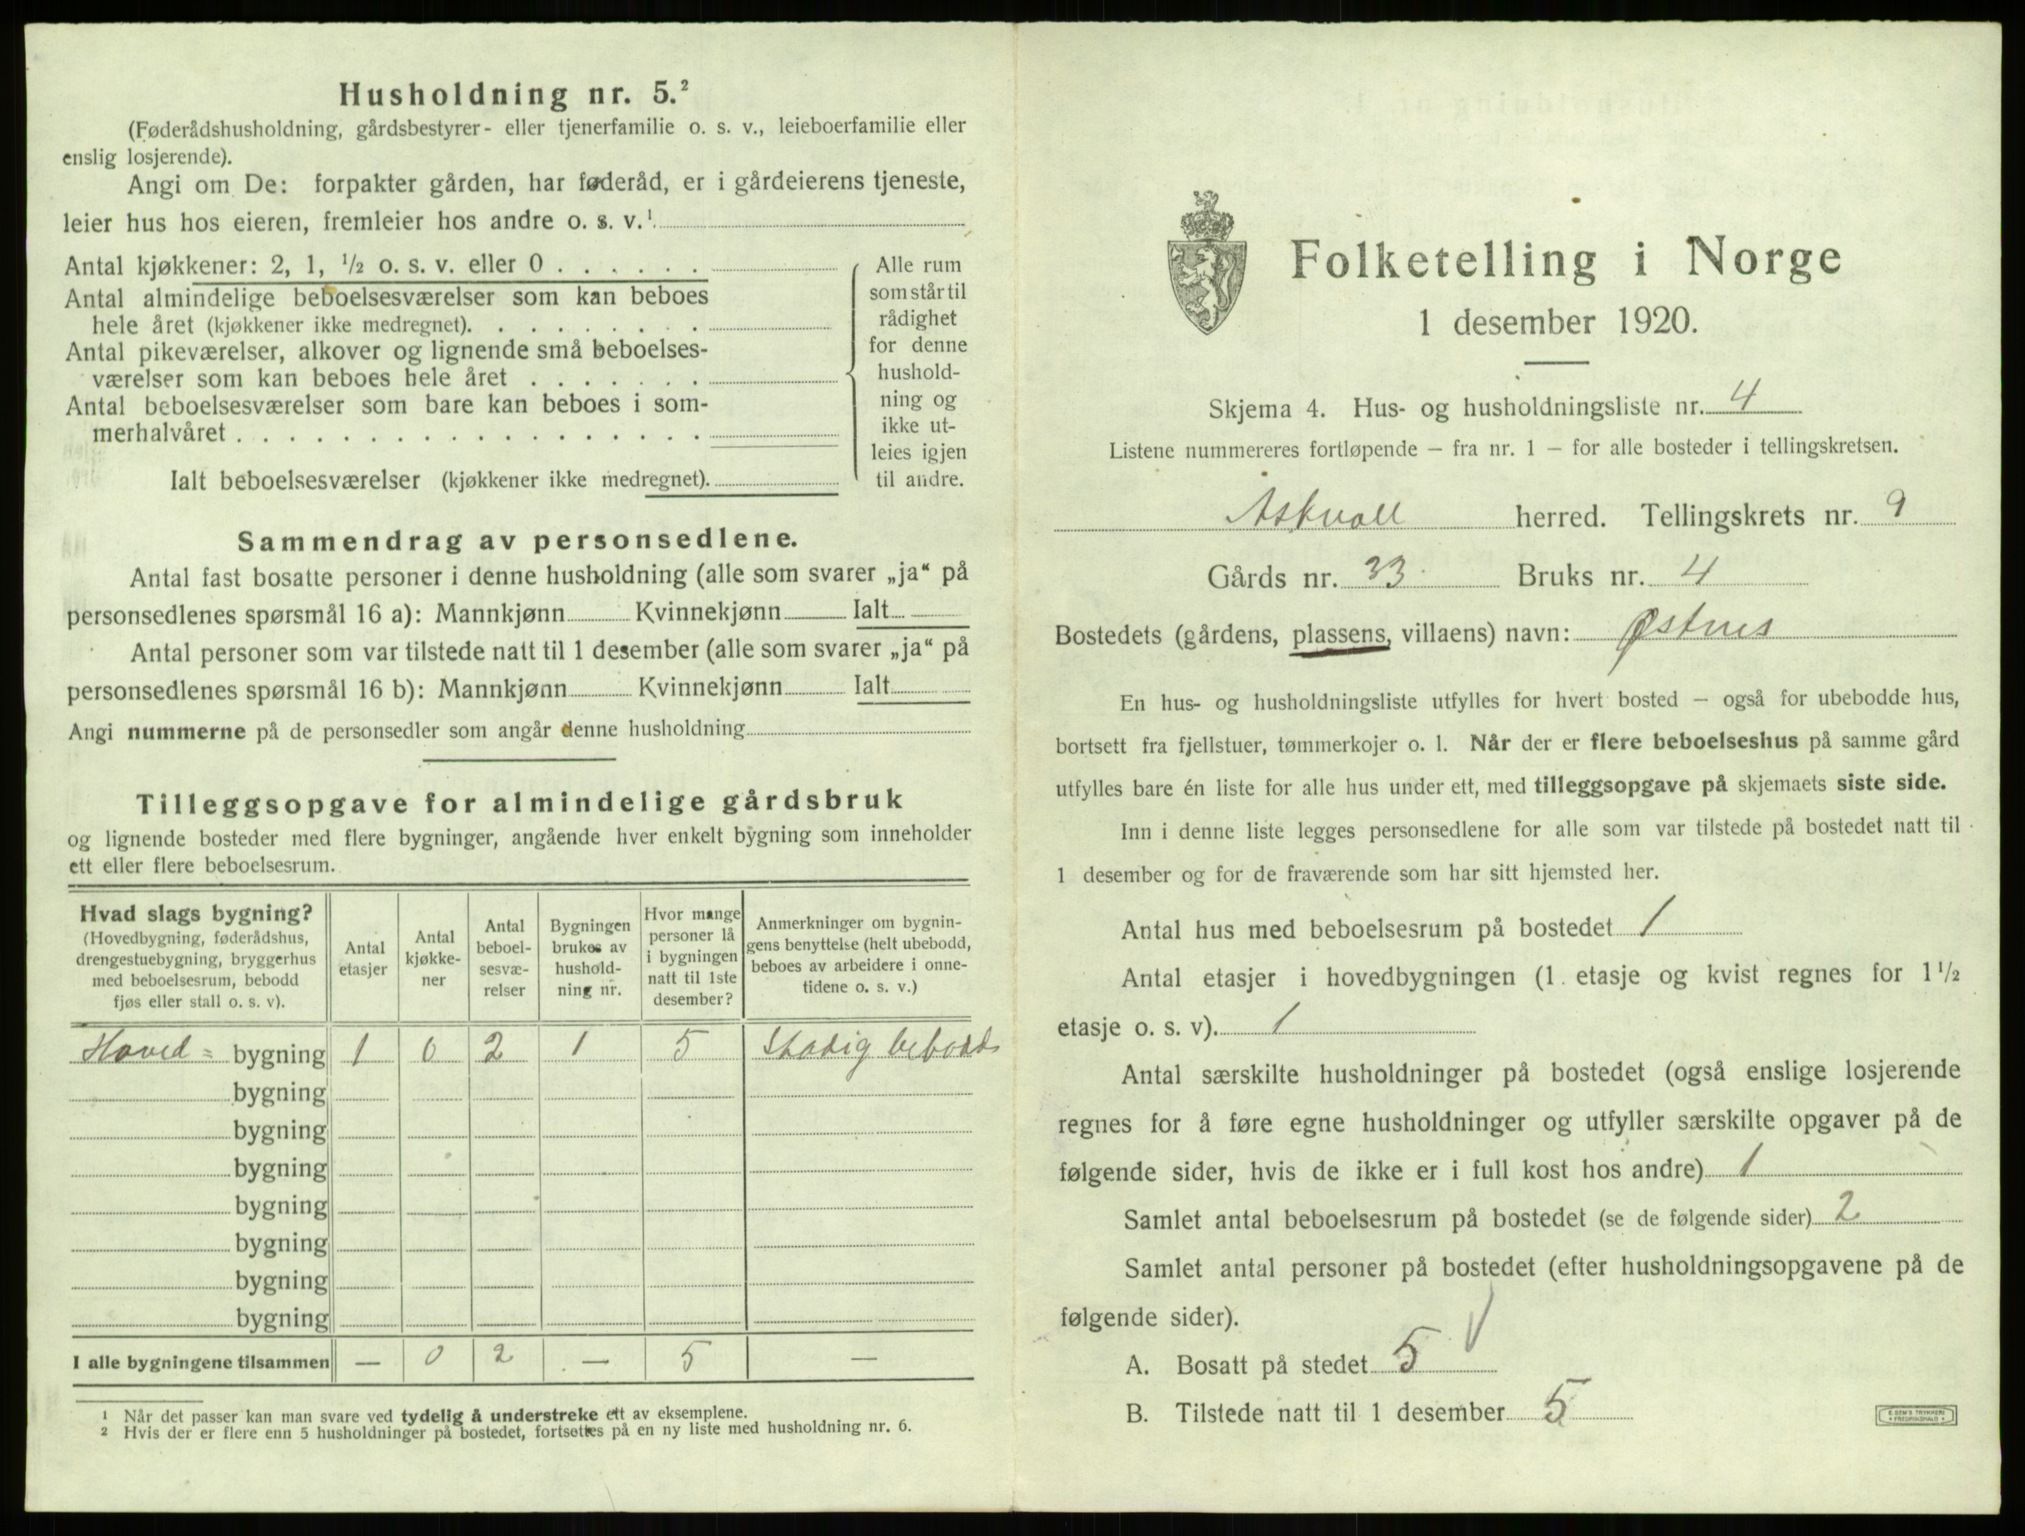 Husholdning nr. 5.²
(Føderådshusholdning, gårdsbestyrer- eller tjenerfamilie o. s. v., leieboerfamilie eller
enslig losjerende).
Angi om De: forpakter gården, har føderåd, er i gårdeierens tjeneste,
leier hus hos eieren, fremleier hos andre o. s. v.¹
Antal kjøkkener: 2, 1, ½ o. s. v. eller 0 . . . . . .
Antal almindelige beboelsesværelser som kan beboes
hele året (kjøkkener ikke medregnet). . . . . . . . .
Antal pikeværelser, alkover og lignende små beboelses-
værelser som kan beboes hele året . . . . . . .
Antal beboelsesværelser som bare kan beboes i som-
merhalvåret . . . . . . . . . . . . . . . . . .
Ialt beboelsesværelser (kjøkkener ikke medregnet).
Alle rum
som står til
rådighet
for denne
hushold-
ning og
ikke ut-
leies igjen
til andre.
Sammendrag av personsedlene.
Antal fast bosatte personer i denne husholdning (alle som svarer „ja“ på
personsedlenes spørsmål 16 a): Mannkjønn Kvinnekjønn Ialt
Antal personer som var tilstede natt til 1 desember (alle som svarer „ja“ på
personsedlenes spørsmål 16 b): Mannkjønn Kvinnekjønn Ialt
Angi nummerne på de personsedler som angår denne husholdning
Tilleggsopgave for almindelige gårdsbruk
og lignende bosteder med flere bygninger, angående hver enkelt bygning som inneholder
ett eller flere beboelsesrum.
Hvad slags bygning?
(Hovedbygning, føderådshus,
drengestuebygning, bryggerhus
med beboelsesrum, bebodd
fjøs eller stall o. s. v).
Antal
etasjer
Antal
kjøkke-
ner
Antal
beboel-
sesvæ-
relser
Bygningen
brukes av
hushold-
ning nr.
Hvor mange
personer lå
i bygningen
natt til 1ste
desember?
Anmerkninger om bygnin-
gens benyttelse (helt ubebodd,
beboes av arbeidere i onne-
tidene o. s. v.)
Hoved= bygning 1 0 2 1 5 Stadig bebodd
bygning
bygning
bygning
bygning
bygning
bygning
bygning
I alle bygningene tilsammen — 0 2 — 5 —
¹ Når det passer kan man svare ved tydelig å understreke ett av eksemplene.
² Hvis der er flere enn 5 husholdninger på bostedet, fortsettes på en ny liste med husholdning nr. 6.
Folketelling i Norge
1 desember 1920.
Skjema 4. Hus- og husholdningsliste nr. 4
Listene nummereres fortløpende – fra nr. 1 – for alle bosteder i tellingskretsen.
Askvoll herred. Tellingskrets nr. 9
Gårds nr. 33 Bruks nr. 4
Bostedets (gårdens, plassens, villaens) navn:
En hus- og husholdningsliste utfylles for hvert bosted – også for ubebodde hus,
bortsett fra fjellstuer, tømmerkojer o. l. Når der er flere beboelseshus på samme gård
utfylles bare én liste for alle hus under ett, med tilleggsopgave på skjemaets siste side.
Inn i denne liste legges personsedlene for alle som var tilstede på bostedet natt til
1 desember og for de fraværende som har sitt hjemsted her.
Antal hus med beboelsesrum på bostedet 1
Antal etasjer i hovedbygningen (1. etasje og kvist regnes for 1½
etasje o. s. v). 1
Antal særskilte husholdninger på bostedet (også enslige losjerende
regnes for å føre egne husholdninger og utfyller særskilte opgaver på de
følgende sider, hvis de ikke er i full kost hos andre) 1
Samlet antal beboelsesrum på bostedet (se de følgende sider) 2
Samlet antal personer på bostedet (efter husholdningsopgavene på de
følgende sider).
A. Bosatt på stedet 5
B. Tilstede natt til 1 desember 5